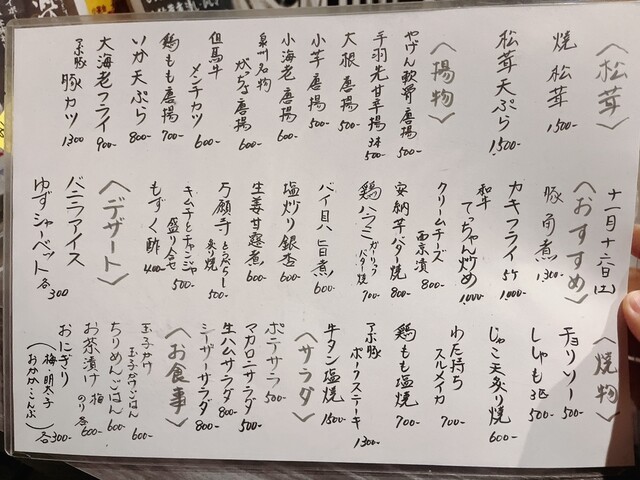 〈松茸〉
焼松茸 1,500-
松茸天ぷら 1,500-
〈揚物〉
やげん軟骨唐揚 500-
手羽先甘辛揚 3本 500-
大根唐揚 500-
小芋唐揚 500-
小海老唐揚 600-
泉州名物 がっちょ唐揚 600-
但馬牛 メンチカツ 600-
鶏もも唐揚 700-
いか天ぷら 800-
大海老フライ 900-
アボ豚 豚カツ 1300
十一月十六日(土)
〈おすすめ〉
豚角煮 1,300-
カキフライ 5ケ 1000-
和牛 てっちゃん炒め 1,000-
クリームチーズ 西京漬 800-
安納芋バター焼 800-
鶏ハラミ ガーリックバター焼 700-
バイ貝旨煮 600-
塩炒り銀杏 600-
生姜甘露煮 600-
万願寺とうがらし 炙り焼 500-
キムチとチャンジャ 盛り合せ 500-
もずく酢 400-
〈デザート〉
バニラアイス
ゆずシャーベット 各300
〈焼物〉
チョリソー 500-
ししゃも 3匹 500-
じゃこ天炙り焼 600-
わた持ち スルメイカ 700-
鶏もも塩焼 700-
アボ豚 ポークステーキ 1300-
牛タン塩焼 1500-
〈サラダ〉
ポテサラ 500-
マカロニサラダ 500-
生ハムサラダ 800-
シーザーサラダ 800-
〈お食事〉
玉子かけ 玉子かけごはん 600-
ちりめんごはん 600-
お茶漬け 梅 のり 各600-
おにぎり (梅・明太子 おかか・こんぶ) 各300-